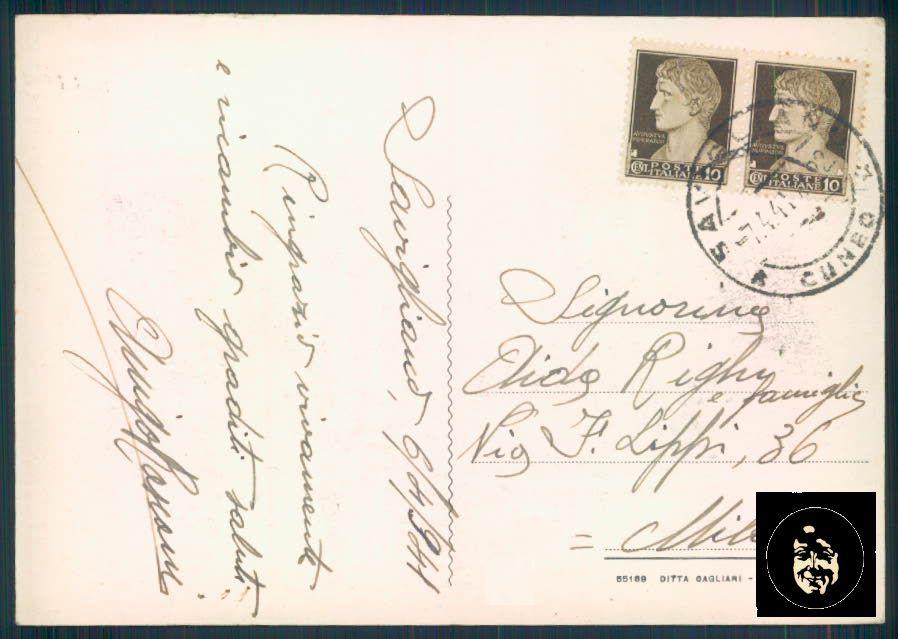 Savigliano, 6/4/941
Ringrazio vivamente
e ricambio graditi saluti.
Signorina
Elide Righi
e famiglia
Via F. Lippi, 36
= Mil
55189 DITTA CAGLIARI -
AVGVSTVS
IMPERATOR
POSTE
CENT. ITALIANE 10
AVGVSTVS
IMPERATOR
POSTE
CENT. ITALIANE 10
7.4.41
CUNEO